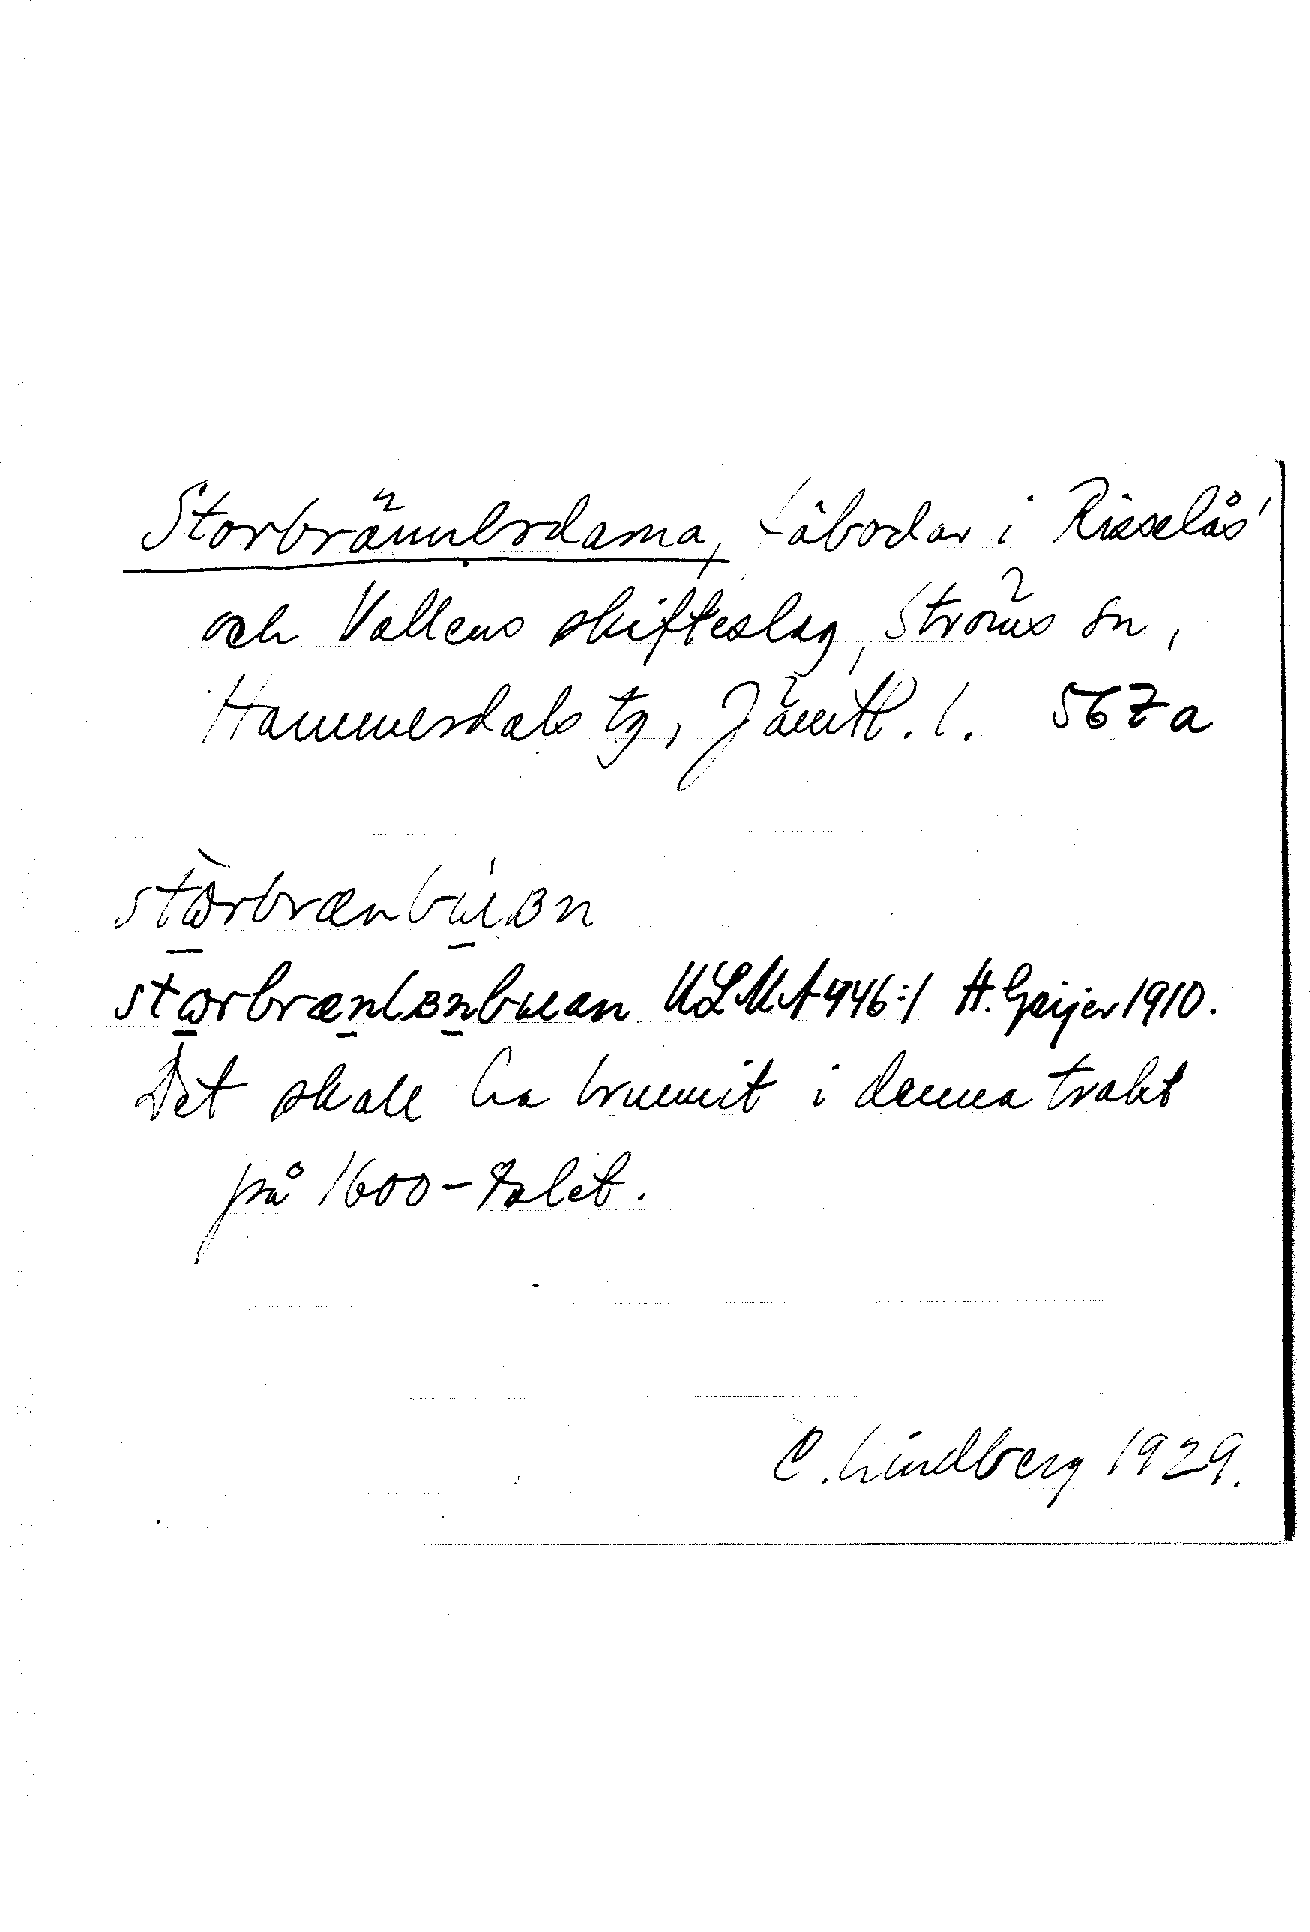 Storbrännbodarna, fäbodar i Risselås
och Vallens skifteslag, Ströms sn,
Hammerdals tg, Jämtl. l. 567a
ULMA 946:1 H. Geijer 1910.
Det skall ha brunnit i denna trakt
på 1600-talet.
C. Lindberg 1929.